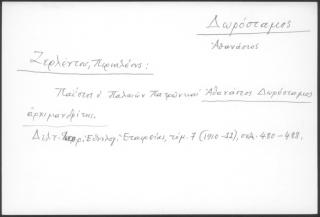 Δωρόσταμος
Ἀθανάσιος
Ζερλέντου, Περικλέους:
Παΐσιος ὁ Παλαιῶν Πατρῶν καὶ Ἀθανάσιος Δωρόσταμος
ἀρχιμανδρίτης.
Δελτ. Ἱστορ. Ἐθνολ. Ἑταιρείας, τόμ. 7 (1910-11), σελ. 480-488.